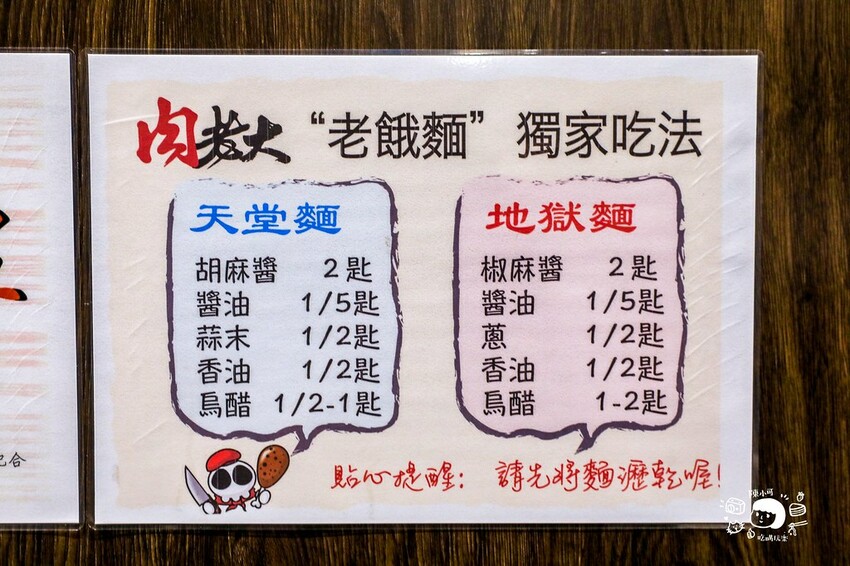 肉老大 “老餓麵” 獨家吃法
天堂麵
胡麻醬 2匙
醬油 1/5匙
蒜末 1/2匙
香油 1/2匙
烏醋 1/2-1匙
地獄麵
椒麻醬 2匙
醬油 1/5匙
蔥 1/2匙
香油 1/2匙
烏醋 1-2匙
貼心提醒： 請先將麵瀝乾喔!
配合
吃喝玩樂